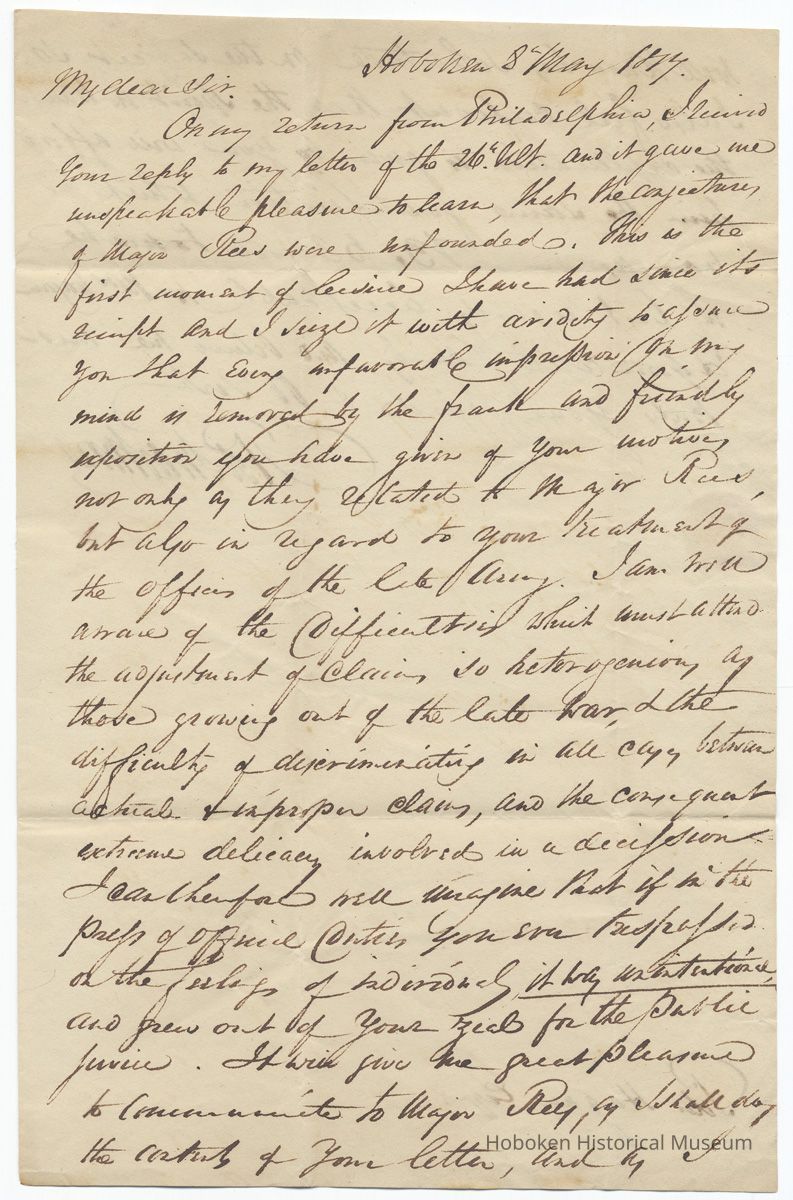 Hoboken 8th May 1817.
My dear Sir.
On my return from Philadelphia, I received
Your reply to my letter of the 26th Ult. and it gave me
unspeakable pleasure to learn, that the conjectures
of Major Rees were unfounded. This is the
first moment of leisure I have had since its
receipt and I seize it with avidity to assure
you that every unfavorable impression on my
mind is removed by the frank and friendly
exposition you have given of your motives
not only as they related to Major Rees,
but also in regard to your treatment of
the officers of the late Army. I am well
aware of the difficulties which must attend
the adjustment of claims so heterogenious as
those growing out of the late war, & the
difficulty of discriminating in all cases between
actual & improper claims, and the consequent
extreme delicacy involved in a decission.
I can therefore well imagine that if in the
press of official duties you ever trespassed
on the feelings of individuals, it was unintentional,
and grew out of your zeal for the public
service. It will give me great pleasure
to communicate to Major Rees, as I shall do,
the contents of your letter, and as I
Hoboken Historical Museum